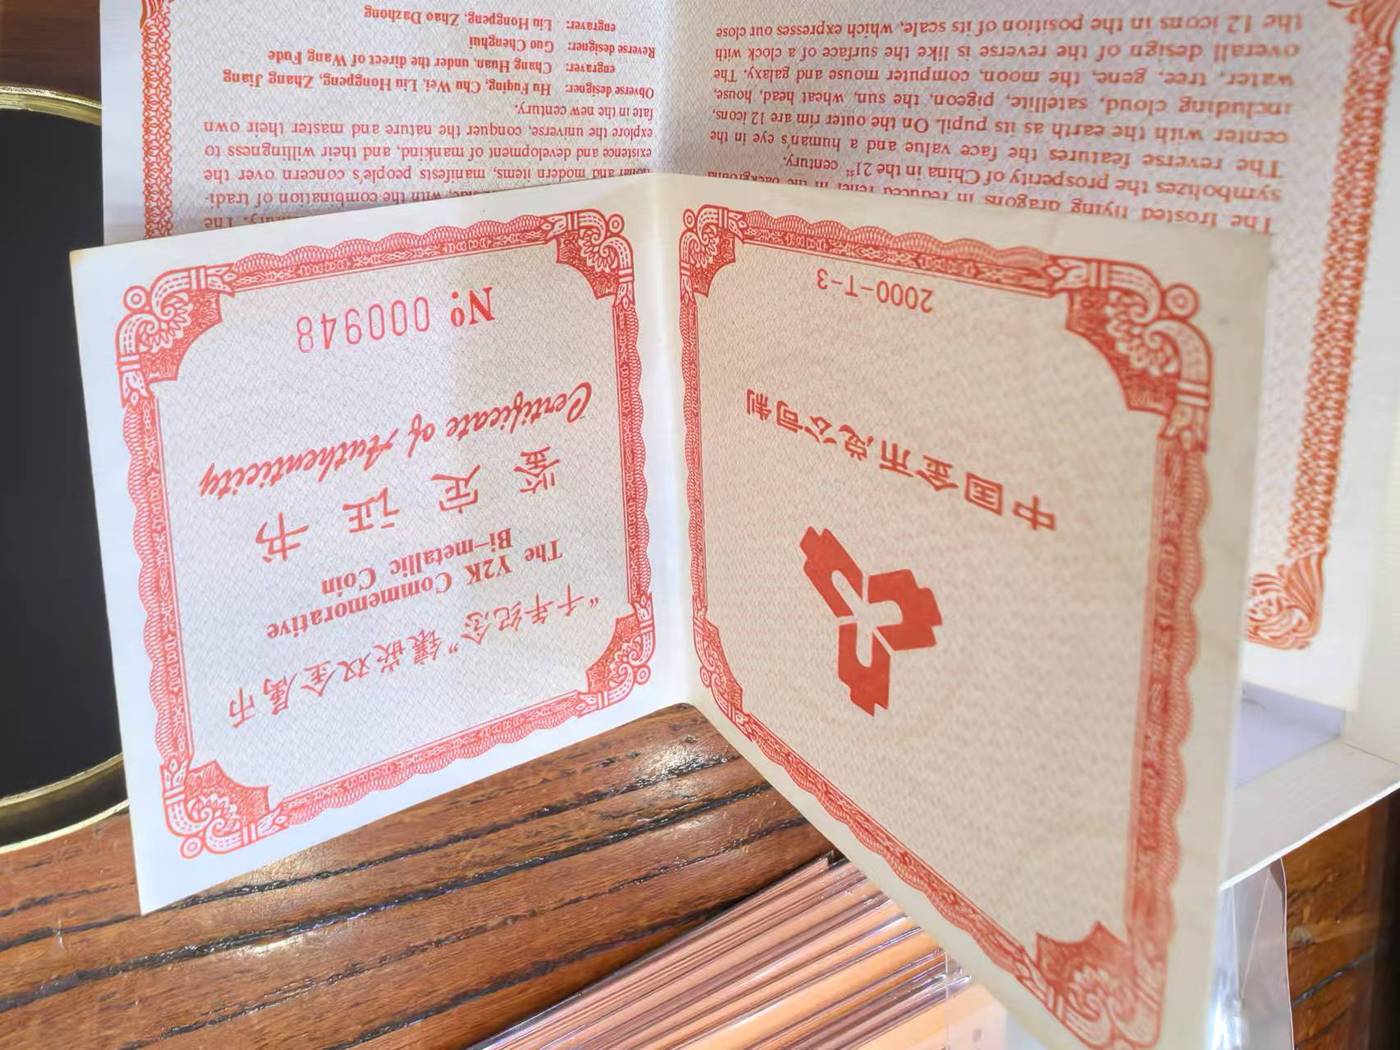 “千年纪念”镶嵌双金属币
The Y2K Commemorative
Bi-metallic Coin
鉴定证书
Certificate of Authenticity
No 000948
中国金币总公司制
2000-T-3
The frosted flying dragons in reduced relief in the background
symbolizes the prosperity of China in the 21st century.
The reverse features the face value and a human's eye in the
center with the earth as its pupil. On the outer rim are 12 icons,
including cloud, satellite, pigeon, the sun, wheat head, house,
water, tree, gene, the moon, computer mouse and galaxy. The
overall design of the reverse is like the surface of a clock with
the 12 icons in the position of its scale, which expresses our close
The
with the combination of tradi-
and modern items, manifests people's concern over the
existence and development of mankind, and their willingness to
explore the universe, conquer the nature and master their own
fate in the new century.
Obverse designer: Hu Fuqing, Chu Wei, Liu Hongpeng, Zhang Jiang
engraver: Chang Huan, under the direct of Wang Fude
Reverse designer: Guo Chenghui
engraver: Liu Hongpeng, Zhao Dazhong